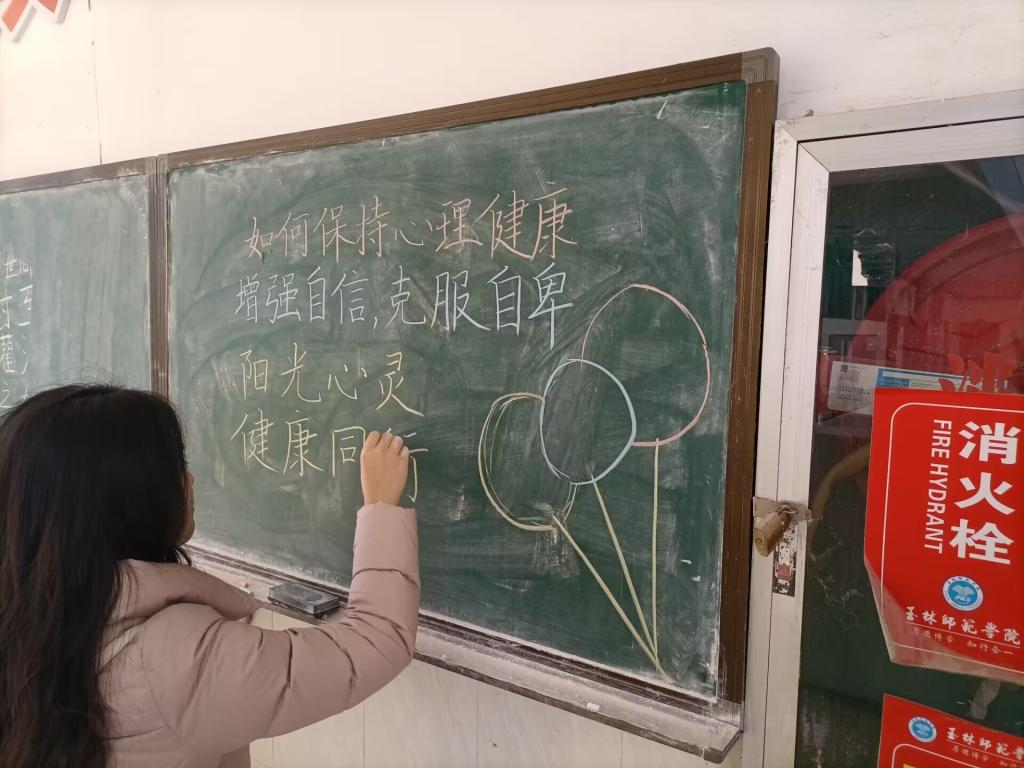 如何保持心理健康
增强自信,克服自卑
阳光心灵
健康同行
消火栓
FIRE HYDRANT
玉林师范学院
厚德博学 知行合一
玉林师范学院
厚德博学